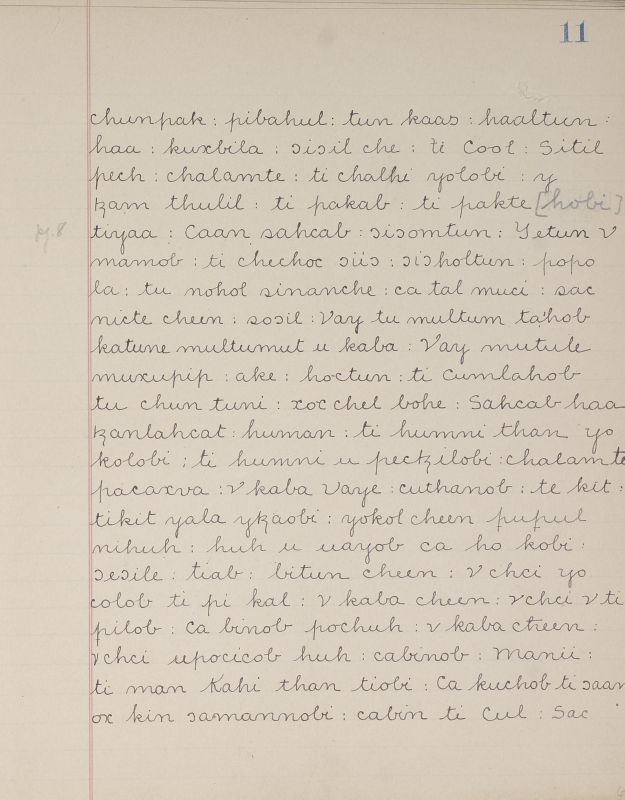 11
chunpak : pibahul : tun kaas : haaltun :
haa : kuxbila : ɔiɔil che : ti Cool : Sitil
pech : chalamte : ti chalhi yolobi : y
ꜩam thulil : ti pakab : ti pakte [hobi]
pg. 8
tiyaa : Caan sahcab : ɔiɔomtun : Yetun V
mamob : ti chechoc ɔiiɔ : ɔiɔholtun : popo
la : tu nohol sinanche : ca tal muci : sac
nicte cheen : sosil : Vay tu multum ta'hob
katune multumut u kaba : Vay mutule
muxupip : ake : hoctun : ti cumlahob
tu chun tuni : xoc chel bohe : Sahcab haa
ꜩanlahcat : human : ti humni than yo
kolobi ; ti humni u pecꜩilobi : chalamte
pacaxva : V kaba Vaye : cuthanob : te kit :
tikit yala yꜩaobi : yokol cheen pupul
nihuh : huh u uayob ca ho kobi :
ɔeɔile : tiab : bitun cheen : V chci yo
colob ti pi kal : V kaba cheen : vchci v ti
pilob : Ca binob pochuh : v kaba cheen :
vchci upocicob huh : cabinob : Manii :
ti man Kahi than tiobi : Ca kuchob ti ɔaan
ox kin ɔamannobi : cabin ti Cul : Sac